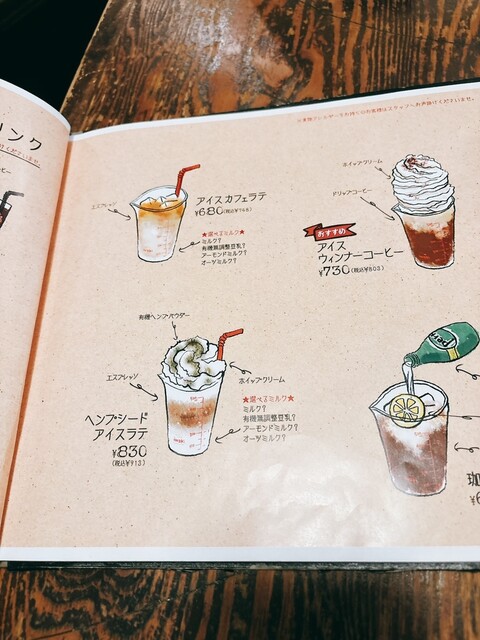 リンク
けくださいませ。
ヒー
アイスカフェラテ
¥680(税込¥748)
エスプレッソ
★選べるミルク★
ミルク?
有機無調整豆乳?
アーモンドミルク?
オーツミルク?
ホイップ・クリーム
ドリップ・コーヒー
おすすめ
アイス
ウィンナーコーヒー
¥730(税込¥803)
有機ヘンプ・パウダー
エスプレッソ
ホイップ・クリーム
ヘンプ・シード
アイスラテ
¥830
(税込¥913)
★選べるミルク★
ミルク?
有機無調整豆乳?
アーモンドミルク?
オーツミルク?
perri
珈